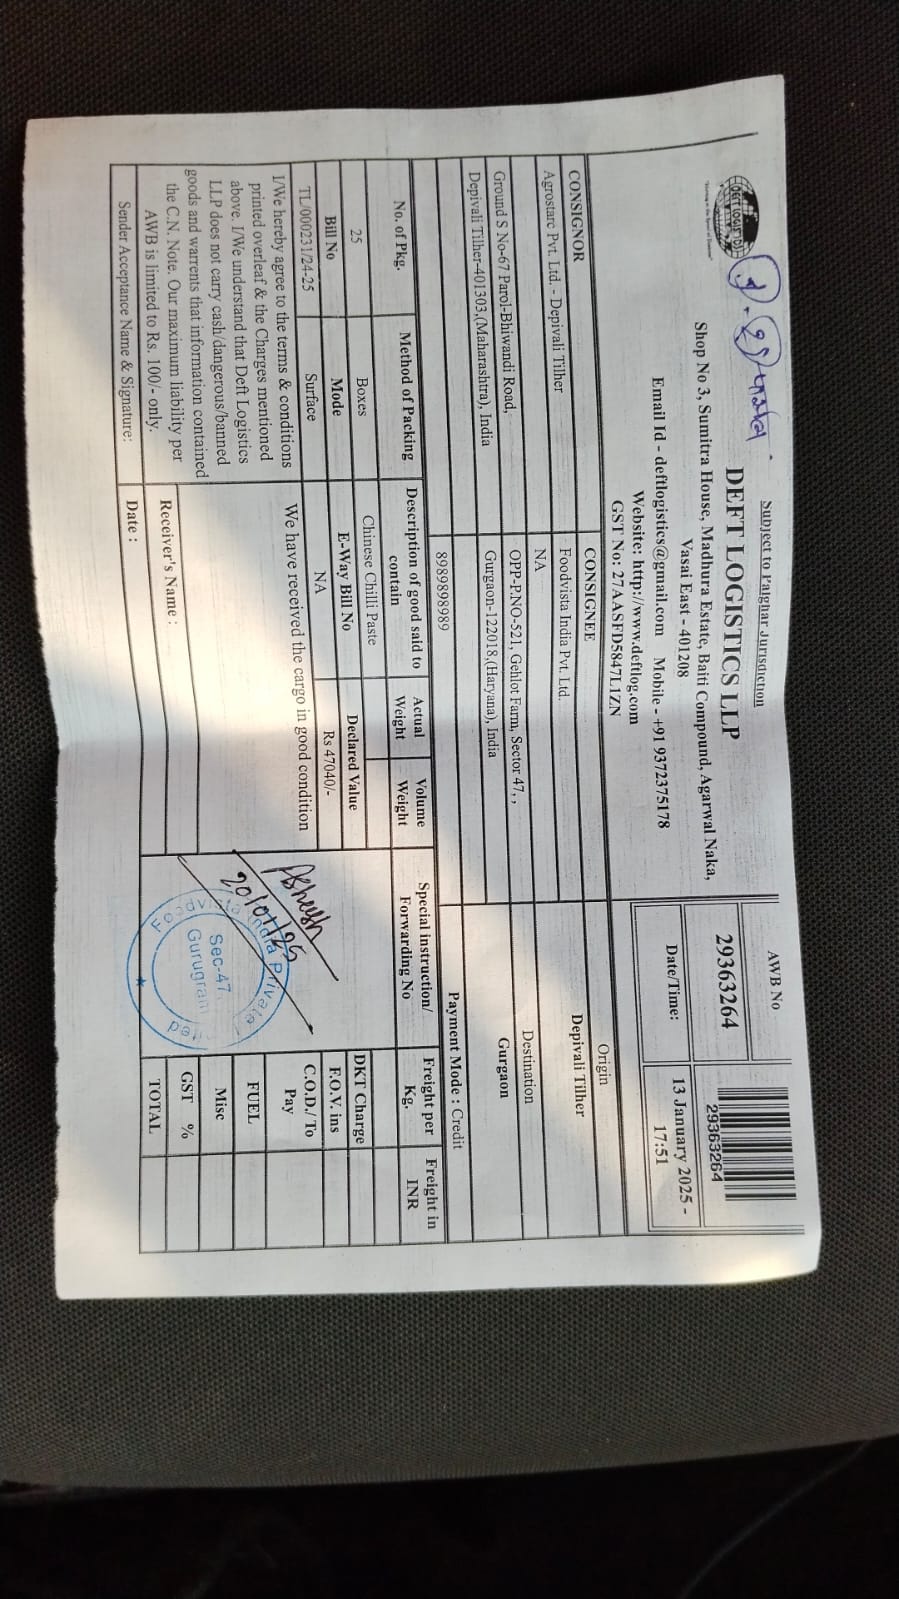 Subject to Palghar Jurisdiction
DEFT LOGISTICS LLP
Shop No 3, Sumitra House, Madhura Estate, Baiti Compound, Agarwal Naka,
Vasai East - 401208
Email Id - deftlogistics@gmail.com Mobile - +91 9372375178
Website: http://www.deftlog.com
GST No: 27AASFD5847L1ZN
AWB No
29363264
29363264
Date/Time:
13 January 2025 -
17:51
CONSIGNOR
CONSIGNEE
Origin
Agrostarc Pvt. Ltd. - Depivali Tilher
Foodvista India Pvt. Ltd.
Depivali Tilher
Ground S No-67 Parol-Bhiwandi Road,
Depivali Tilher-401303,(Maharashtra), India
NA
OPP-P.NO-521, Gehlot Farm, Sector 47, ,
Gurgaon-122018,(Haryana), India
Destination
Gurgaon
8989898989
Payment Mode : Credit
No. of Pkg.
Method of Packing
Description of good said to
contain
Actual
Weight
Volume
Weight
Special instruction/
Forwarding No
Freight per
Kg.
Freight in
INR
25
Boxes
Chinese Chilli Paste
Bill No
Mode
E-Way Bill No
Declared Value
DKT Charge
TL/000231/24-25
Surface
NA
Rs 47040/-
F.O.V. ins
C.O.D./ To
Pay
FUEL
Misc
GST %
TOTAL
I/We hereby agree to the terms & conditions
printed overleaf & the Charges mentioned
above. I/We understand that Deft Logistics
LLP does not carry cash/dangerous/banned
goods and warrents that information contained
the C.N. Note. Our maximum liability per
AWB is limited to Rs. 100/- only.
We have received the cargo in good condition
Receiver's Name :
Sender Acceptance Name & Signature:
Date :
20/01/25
Foodvista India Private
Sec-47,
Gurugram